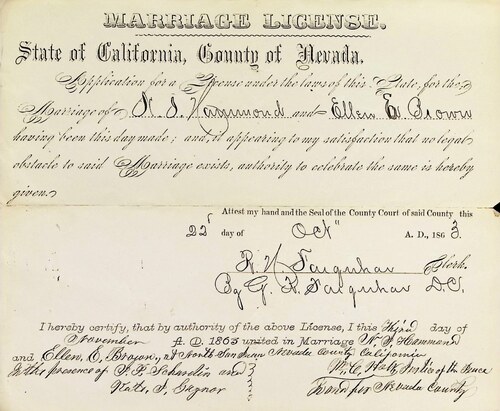 MARRIAGE LICENSE.
State of California, County of Nevada.
Application for a License under the laws of this State, for the
Marriage of N. S. Hammond and Ellen E. Brown
having been this day made; and, it appearing to my satisfaction that no legal
obstacle to said Marriage exists, authority to celebrate the same is hereby
given.
Attest my hand and the Seal of the County Court of said County this
22 day of Oct A. D., 1863.
R. H. Farquhar Clerk.
By G. K. Farquhar D.C.
I hereby certify, that by authority of the above License, I this Third day of
November A. D. 1863 united in Marriage N. S. Hammond
and Ellen, E. Brown, at North San Juan Nevada County California
In the presence of and W. C. Justice of the Peace
In and for Nevada County